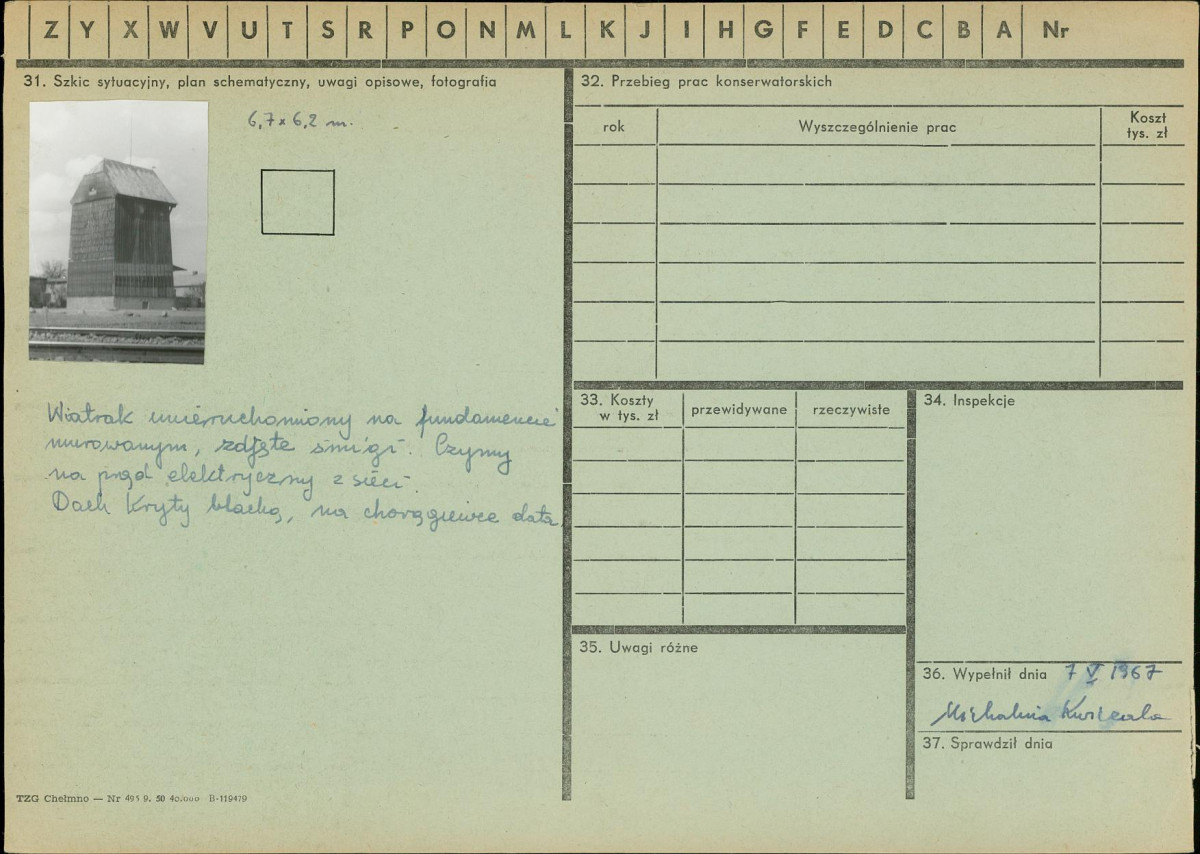 Z Y X W V U T S R P O N M L K J I H G F E D C B A Nr
31. Szkic sytuacyjny, plan schematyczny, uwagi opisowe, fotografia
6,7 x 6,2 m.
Wiatrak unieruchomiony na fundamencie
murowanym, zdjęte śmigi. Czynny
na prąd elektryczny z sieci.
Dach kryty blachą, na chorągiewce data
TZG Chełmno — Nr 495 9. 50 40.000 B-119479
32. Przebieg prac konserwatorskich
rok Wyszczególnienie prac Koszt tys. zł
33. Koszty w tys. zł przewidywane rzeczywiste
34. Inspekcje
35. Uwagi różne
36. Wypełnił dnia 7 V 1967
Michalina
37. Sprawdził dnia